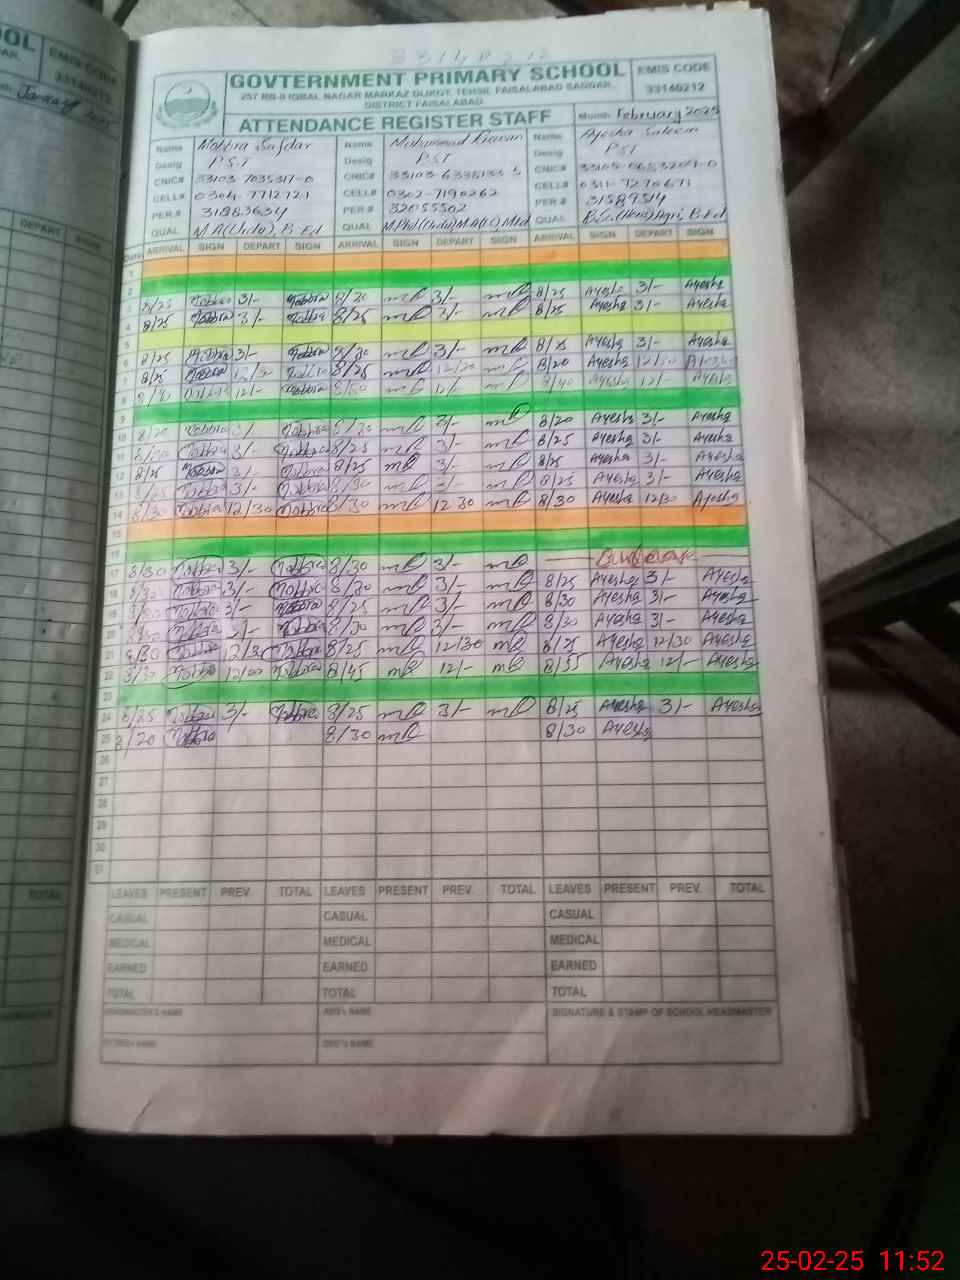 OOL
EMIS CODE
33140212
January
DEPART
SIGN
TOTAL
GOVTERNMENT PRIMARY SCHOOL
EMIS CODE
257 RB-II IQBAL NAGAR MARKAZ DIJKOT, TEHSIL FAISALABAD SADDAR,
33140212
DISTRICT FAISALABAD
ATTENDANCE REGISTER STAFF
Month: February 2025
Name Mobbra Safdar Name Muhammad Name Ayesha Saleem
Desig P.S.T Desig PST Desig PST
CNIC# 33103 7035317-0 CNIC# CNIC#
CELL# 0304-7712721 CELL# 0302-7190262 CELL# 0311-7270671
PER.# 31883634 PER.# 32055502 PER.# 31589514
QUAL M.A(Urdu), B.Ed QUAL M.Phil(Urdu) QUAL B.Sc(Hons)Agri, B.Ed
Date ARRIVAL SIGN DEPART SIGN ARRIVAL SIGN DEPART SIGN ARRIVAL SIGN DEPART SIGN
1
2
3 8/25 Mobbra 3/- Mobbra 8/30 3/- 8/25 Ayesha 3/- Ayesha
4 8/25 Mobbra 3/- Mobbra 8/25 3/- 8/25 Ayesha 3/- Ayesha
5
6 8/25 Mobbra 3/- Mobbra 8/30 3/- 8/25 Ayesha 3/- Ayesha
7 8/25 Mobbra 12/30 Mobbra 8/25 12/30 8/20 Ayesha 12/30 Ayesha
8 12/- 12/- Ayesha 12/- Ayesha
9
10 8/20 Mobbra 3/- Mobbra 8/30 3/- 8/20 Ayesha 3/- Ayesha
11 8/30 Mobbra 3/- Mobbra 8/25 3/- 8/25 Ayesha 3/- Ayesha
12 8/25 Mobbra 3/- Mobbra 8/25 3/- 8/25 Ayesha 3/- Ayesha
13 8/25 Mobbra 3/- Mobbra 8/30 3/- 8/25 Ayesha 3/- Ayesha
14 8/30 Mobbra 12/30 Mobbra 8/30 12 30 8/30 Ayesha 12/30 Ayesha
15
16
17 8/30 Mobbra 3/- Mobbra 8/30 3/-
18 8/30 Mobbra 3/- Mobbra 8/30 3/- 8/25 Ayesha 3/- Ayesha
19 8/30 Mobbra 3/- Mobbra 8/25 3/- 8/30 Ayesha 3/- Ayesha
20 8/30 Mobbra 3/- Mobbra 8/30 3/- 8/30 Ayesha 3/- Ayesha
21 8/30 Mobbra 12/30 Mobbra 8/25 12/30 8/25 Ayesha 12/30 Ayesha
22 8/30 Mobbra 12/00 Mobbra 8/45 12/- 8/55 Ayesha 12/- Ayesha
23
24 8/25 Mobbra 3/- Mobbra 8/25 3/- 8/25 Ayesha 3/- Ayesha
25 8/20 Mobbra 8/30 8/30 Ayesha
26
27
28
29
30
31
LEAVES PRESENT PREV. TOTAL LEAVES PRESENT PREV. TOTAL LEAVES PRESENT PREV. TOTAL
CASUAL CASUAL CASUAL
MEDICAL MEDICAL MEDICAL
EARNED EARNED EARNED
TOTAL TOTAL TOTAL
HEADMASTER'S NAME AEO's NAME SIGNATURE & STAMP OF SCHOOL HEADMASTER
DY.DEO's NAME DEO's NAME
25-02-25 11:52